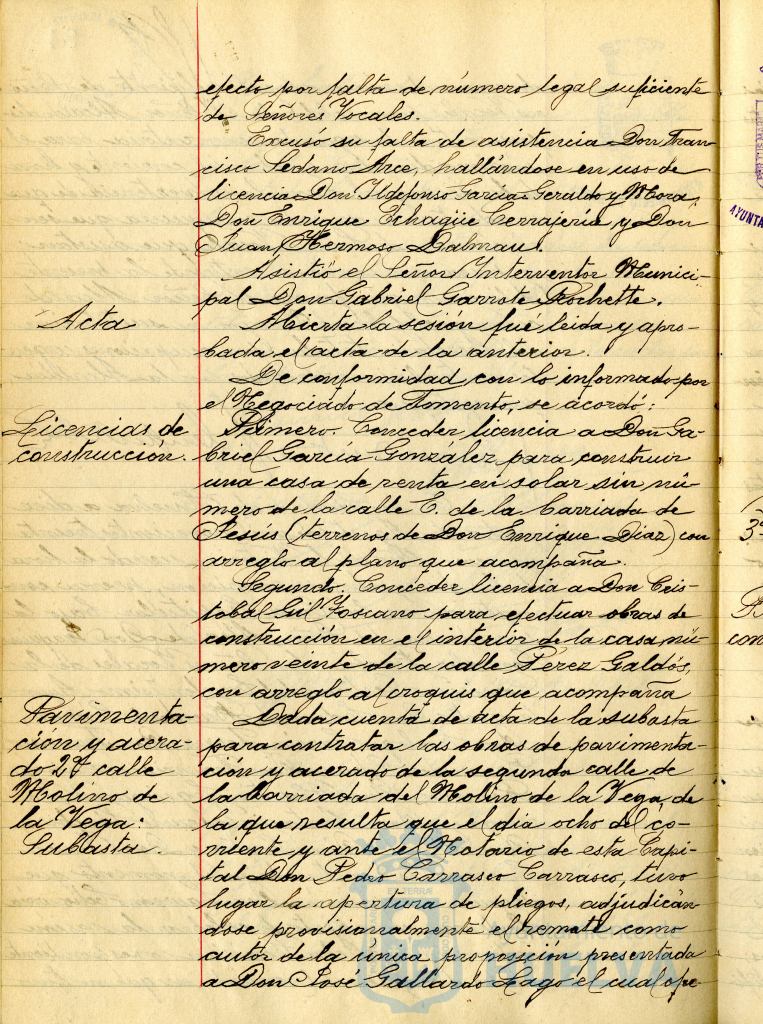 efecto por falta de número legal suficiente
de Señores Vocales.
Excusó su falta de asistencia Don Fran-
cisco Sedano Arce, hallándose en uso de
licencia Don Ildefonso García Geraldo y Mora,
Don Enrique Echagüe Cerrajería y Don
Juan Hermoso Dalmau.
Asistió el Señor Interventor Munici-
pal Don Gabriel Garrote Rochette.
Acta
Abierta la sesión fué leida y apro-
bada el acta de la anterior.
De conformidad con lo informado por
el Negociado de Fomento, se acordó:
Licencias de
construcción.
Primero. Conceder licencia a Don Ga-
briel García González para construir
una casa de renta en solar sin nú-
mero de la calle C. de la barriada de
Jesús (terrenos de Don Enrique Diaz) con
arreglo al plano que acompaña.
Segundo. Conceder licencia a Don Cris-
tobal Gil Toscano para efectuar obras de
construcción en el interior de la casa nú-
mero veinte de la calle Pérez Galdós,
con arreglo al croquis que acompaña
Pavimenta-
ción y acera-
do 2ª calle
Molino de
la Vega:
Subasta.
Dada cuenta de acta de la subasta
para contratar las obras de pavimenta-
ción y acerado de la segunda calle de
la barriada del Molino de la Vega, de
la que resulta que el día ocho del co-
rriente y ante el Notario de esta Capi-
tal Don Pedro Carrasco Carrasco, tuvo
lugar la apertura de pliegos, adjudicán-
dose provisionalmente el remate como
autor de la única proposición presentada
a Don José Gallardo Lago el cual ofre-